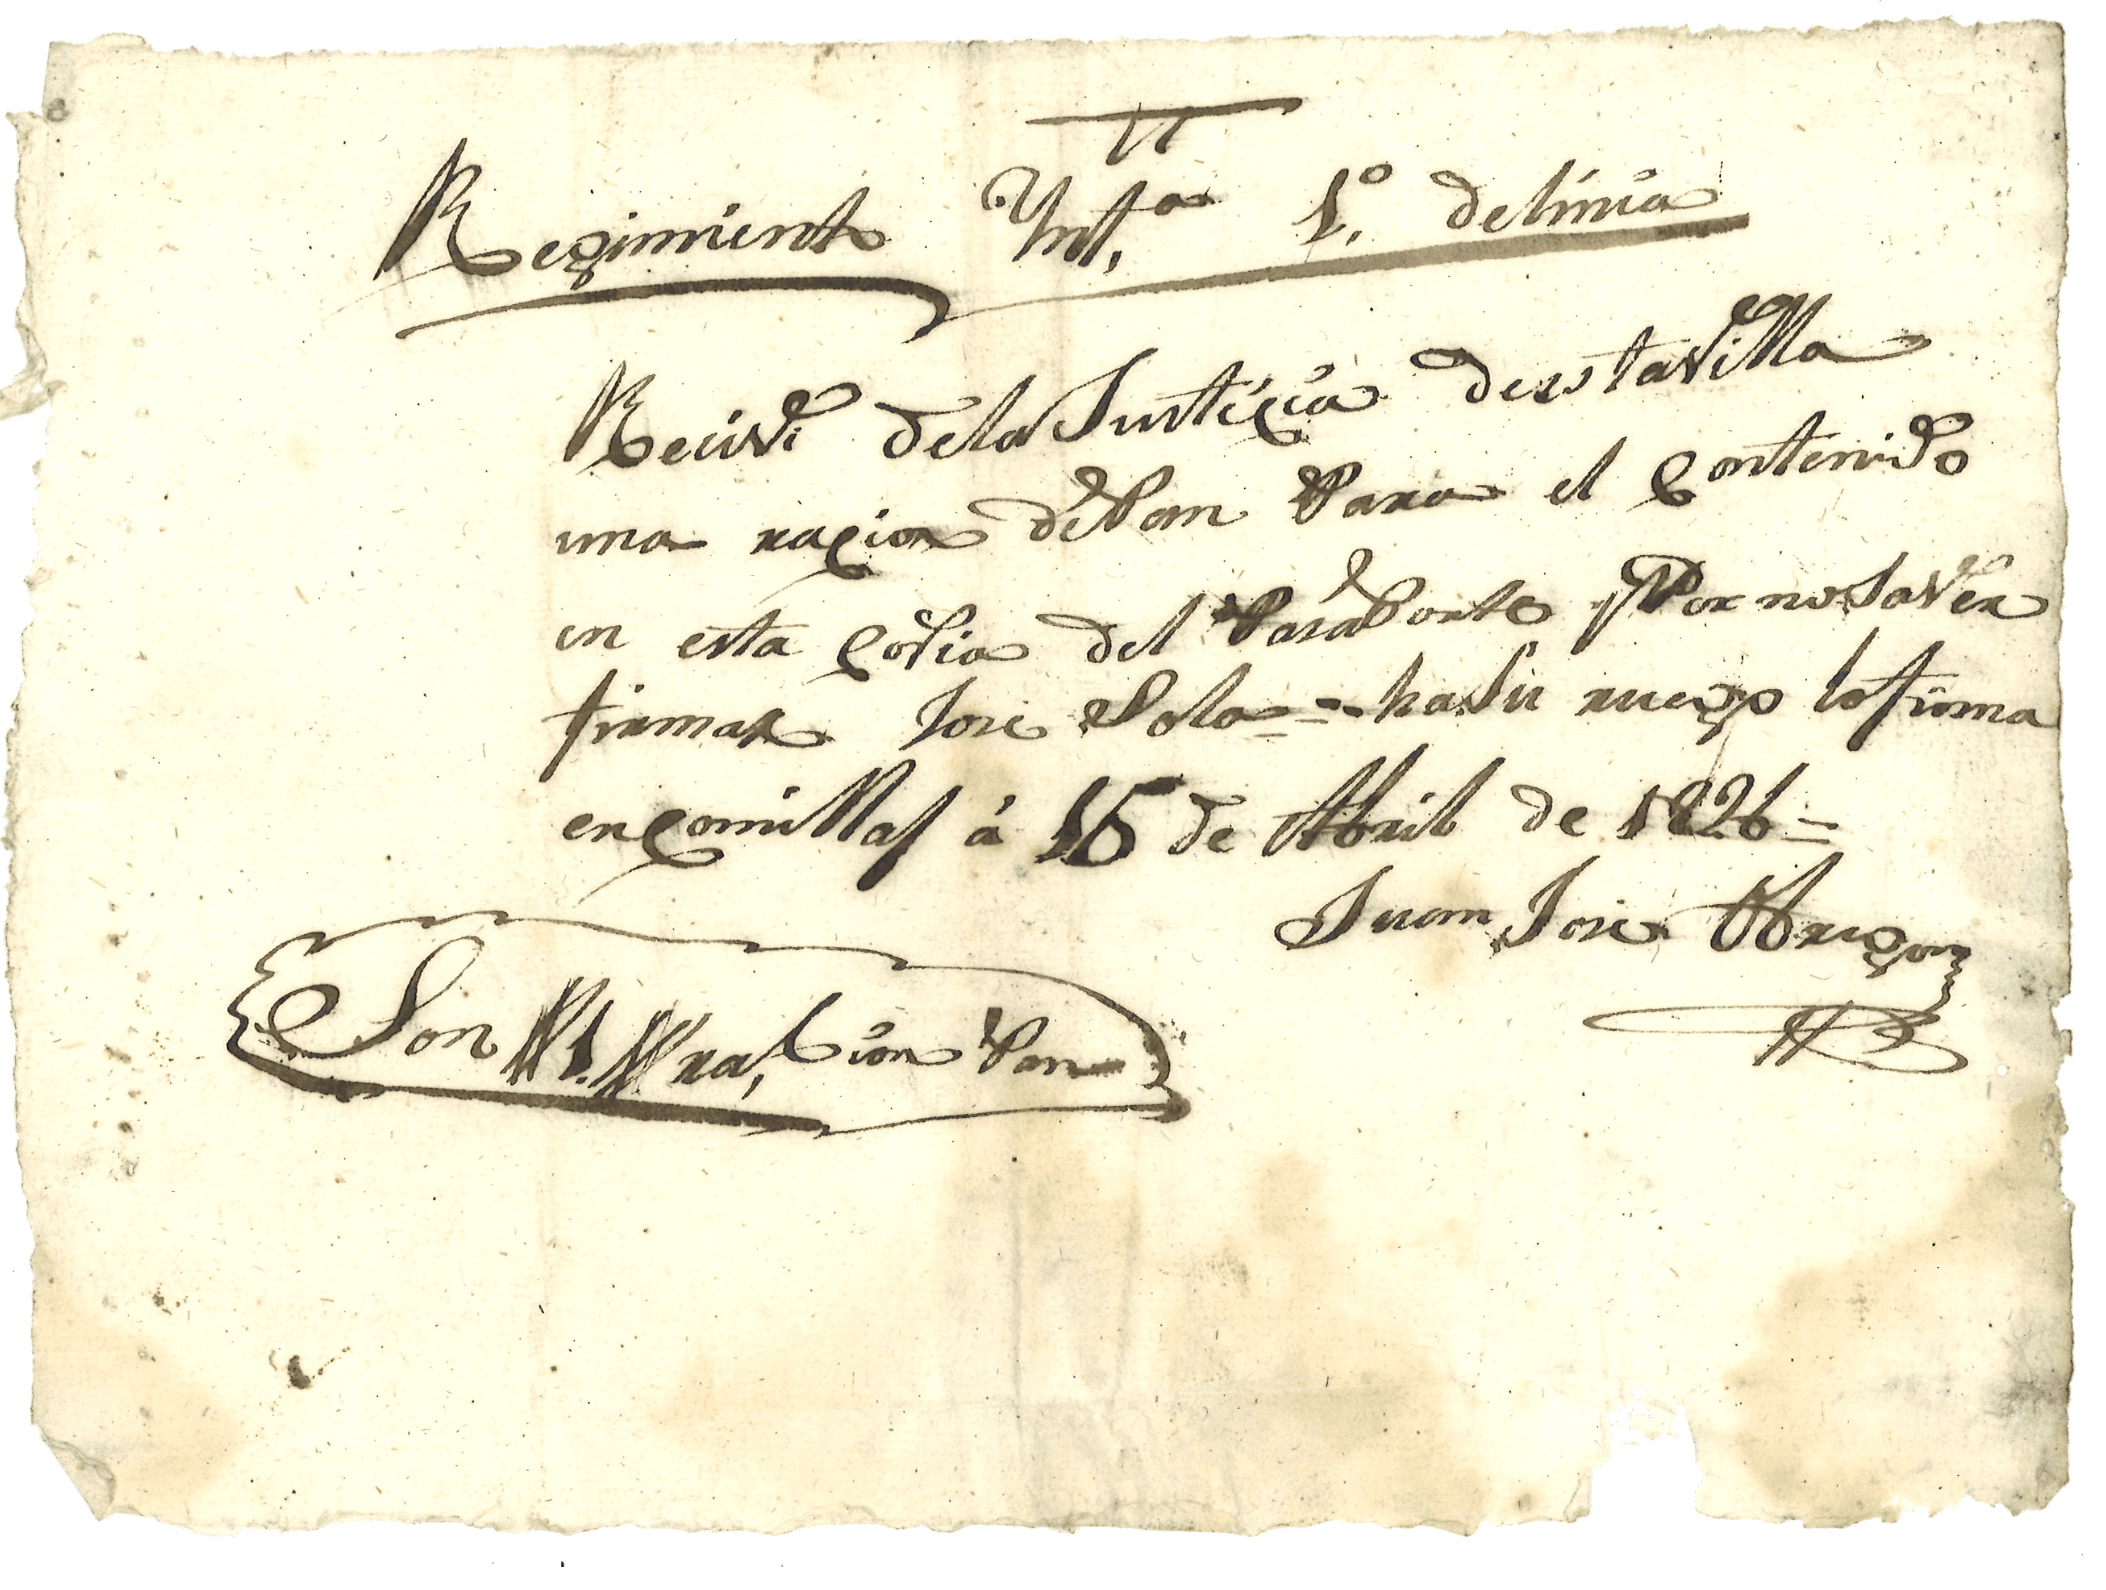 Regimiento Ynf.ª 1.º de linia
Recivi de la Justiçia de estavilla
una raçion de Pan Para el Contenido
en esta Copia del Pasaporte y Por no Saver
firmar Jose Polo = ha Su ruego lo firma
en Comillas á 15 de Abril de 1826=
Juan Jose Aragon
Son 1. raçion Pan